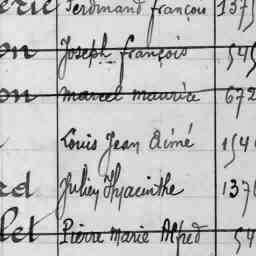 eric Ferdinand françois 137
on Joseph françois 545
on marcel maurice 672
Louis Jean Aimé 154
rd Julien Hyacinthe 137
lel Pierre Marie Alfred 54